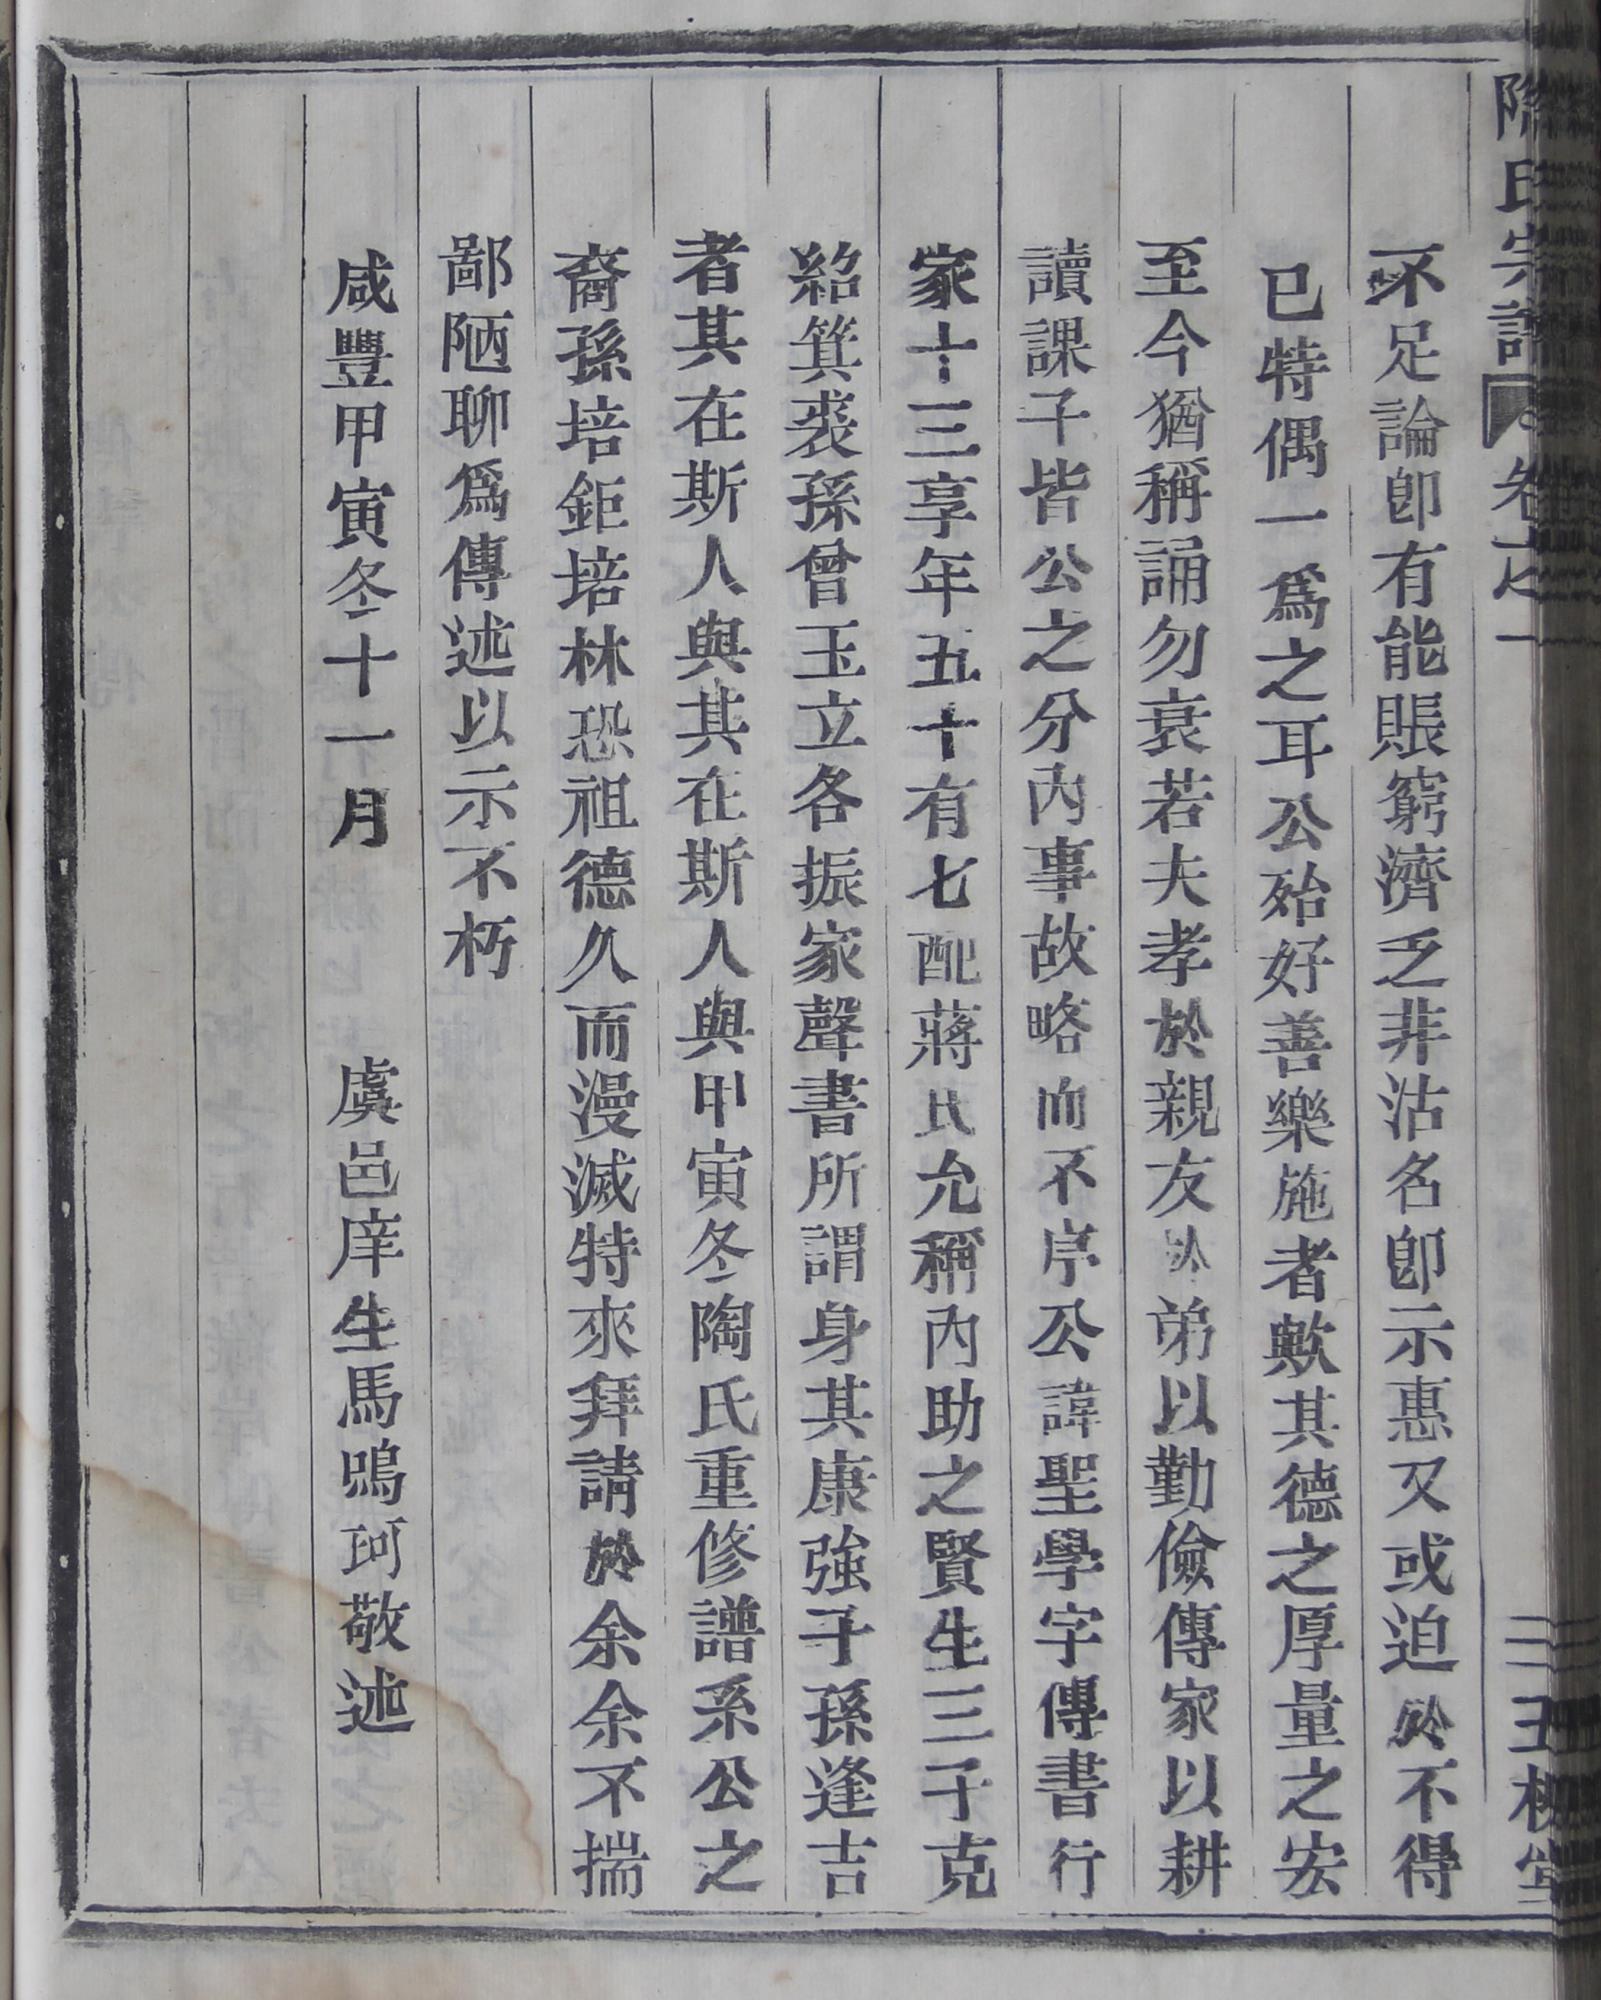 陶氏宗譜 卷之一 三 五柳堂
不足論卽有能賬窮濟乏非沽名卽示惠又或迫於不得
已特偶一爲之耳公殆好善樂施者歟其德之厚量之宏
至今猶稱誦勿衰若夫孝於親友於弟以勤儉傳家以耕
讀課子皆公之分內事故略而不序公諱聖學字傳書行
家十三享年五十有七配蔣氏允稱內助之賢生三子克
紹箕裘孫曾玉立各振家聲書所謂身其康強子孫逢吉
者其在斯人與其在斯人與甲寅冬陶氏重修譜系公之
裔孫培鉅培林恐祖德久而漫滅特來拜請於余余不揣
鄙陋聊爲傳述以示不朽
咸豐甲寅冬十一月 虞邑庠生馬鳴珂敬述